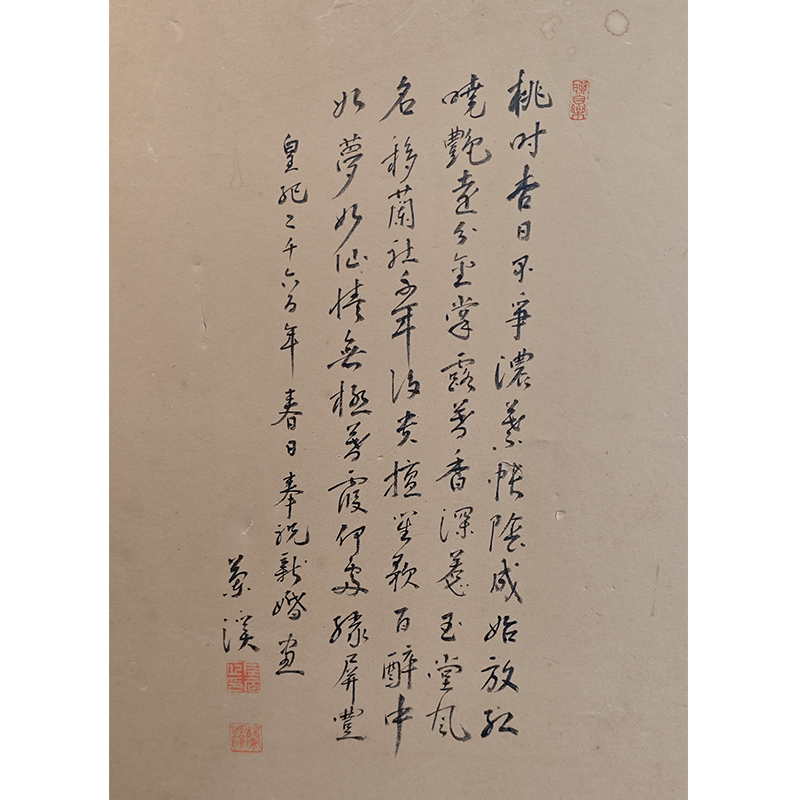 桃时杏日不爭濃葉帳陰成始放紅
曉艷遠分金掌露暮香深惹玉堂風
名移蘭杜千年後貴擅笙歌百醉中
如夢如仙情無極暮霞何處緑屏豐
皇紀二千六百年春日奉祝新婚畫
蘭溪